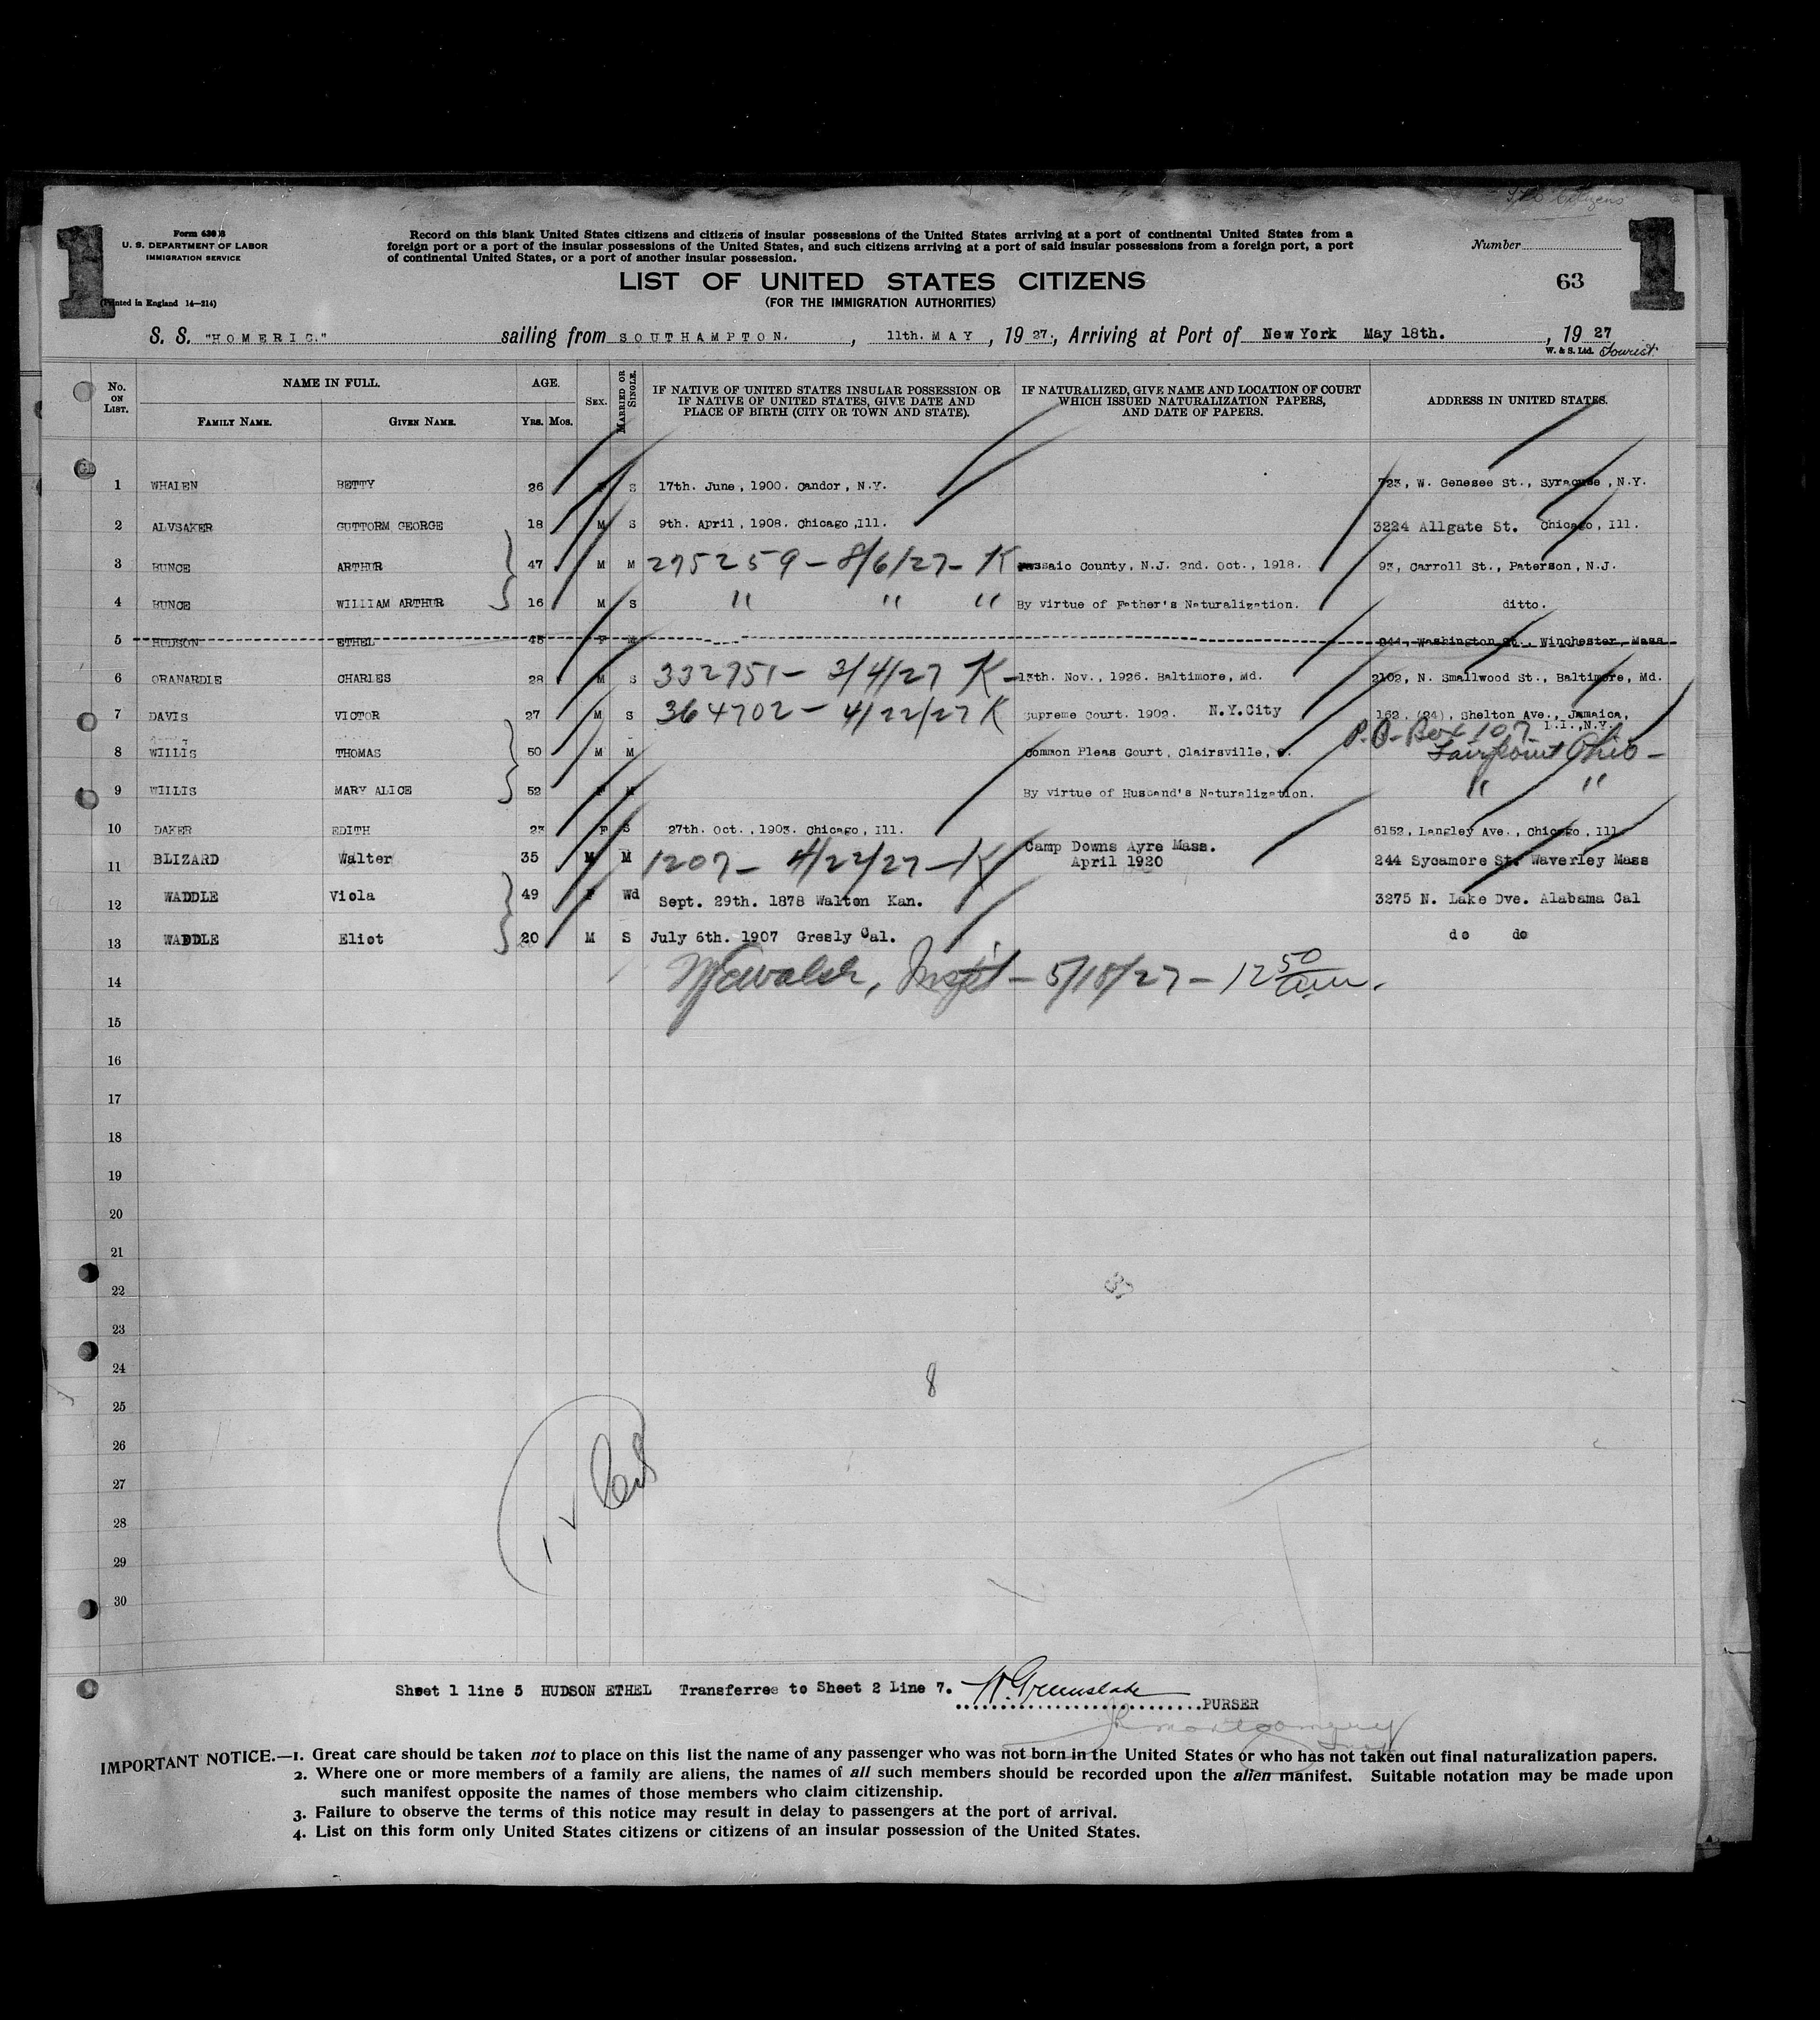 1
Form 630 B
U. S. DEPARTMENT OF LABOR
IMMIGRATION SERVICE
(Printed in England 14—214)
Record on this blank United States citizens and citizens of insular possessions of the United States arriving at a port of continental United States from a
foreign port or a port of the insular possessions of the United States, and such citizens arriving at a port of said insular possessions from a foreign port, a port
of continental United States, or a port of another insular possession.
Citizens
Number
1
LIST OF UNITED STATES CITIZENS
(FOR THE IMMIGRATION AUTHORITIES)
63
S. S. "HOMERIC." sailing from SOUTHAMPTON. , 11th. MAY , 19 27., Arriving at Port of New York May 18th. , 19 27
W. & S. Ltd. Tourist.
No. ON LIST. NAME IN FULL. AGE. SEX. MARRIED OR SINGLE. IF NATIVE OF UNITED STATES INSULAR POSSESSION OR IF NATIVE OF UNITED STATES, GIVE DATE AND PLACE OF BIRTH (CITY OR TOWN AND STATE). IF NATURALIZED, GIVE NAME AND LOCATION OF COURT WHICH ISSUED NATURALIZATION PAPERS, AND DATE OF PAPERS. ADDRESS IN UNITED STATES.
FAMILY NAME. GIVEN NAME. YRS. MOS.
1 WHALEN BETTY 26 S 17th. June, 1900. Candor, N.Y. 723, W. Genesee St., Syracuse, N.Y.
2 ALVSAKER GUTTORM GEORGE 18 M S 9th. April, 1908. Chicago, Ill. 3224 Allgate St. Chicago, Ill.
3 BUNCE ARTHUR 47 M M 275259 - 8/6/27 - K Passaic County, N.J. 2nd. Oct., 1918. 93, Carroll St., Paterson, N.J.
4 BUNCE WILLIAM ARTHUR 16 M S " " " By virtue of Father's Naturalization. ditto.
5 HUDSON ETHEL 45 F M 944, Washington St., Winchester, Mass
6 ORANARDIE CHARLES 28 M S 332751 - 3/4/27 K - 13th. Nov., 1926. Baltimore, Md. 2102, N. Smallwood St., Baltimore, Md.
7 DAVIS VICTOR 27 M S 364702 - 4/22/27 K Supreme Court. 1902. N.Y.City 162. (24), Shelton Ave., Jamaica,
L.I., N.Y.
P.O. Box 107
8 WILLIS THOMAS 50 M M Common Pleas Court, Clairsville, O. Fairpoint Ohio -
9 WILLIS MARY ALICE 52 F M By virtue of Husband's Naturalization. " "
10 DAKER EDITH 23 F S 27th. Oct., 1903. Chicago, Ill. 6152, Langley Ave., Chicago, Ill
11 BLIZARD Walter 35 M M 1207 - 4/22/27 - K Camp Downs Ayre Mass. April 1920 244 Sycamore St. Waverley Mass
12 WADDLE Viola 49 F Wd Sept. 29th. 1878 Walton Kan. 3275 N. Lake Dve. Alabama Cal
13 WADDLE Eliot 20 M S July 6th. 1907 Greely Cal. do do
14 Walsh, Inspt - 5/18/27 - 12 50 am.
15
16
17
18
19
20
21
22
23
24
8
25
26
27
28
29
30
Sheet 1 line 5 HUDSON ETHEL Transferree to Sheet 2 Line 7. W. Greenslade
PURSER
JR Montgomery
IMPORTANT NOTICE.—1. Great care should be taken not to place on this list the name of any passenger who was not born in the United States or who has not taken out final naturalization papers.
2. Where one or more members of a family are aliens, the names of all such members should be recorded upon the alien manifest. Suitable notation may be made upon
such manifest opposite the names of those members who claim citizenship.
3. Failure to observe the terms of this notice may result in delay to passengers at the port of arrival.
4. List on this form only United States citizens or citizens of an insular possession of the United States.